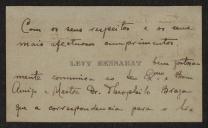 Com os seus respeitos e os seus
mais affectuosos cumprimentos
LEVY BENSABAT
bem gostosa-
mente communica ao seu Exmo e Bom
Amigo e Mestre Dr. Theophilo Braga
que a correspondencia para o